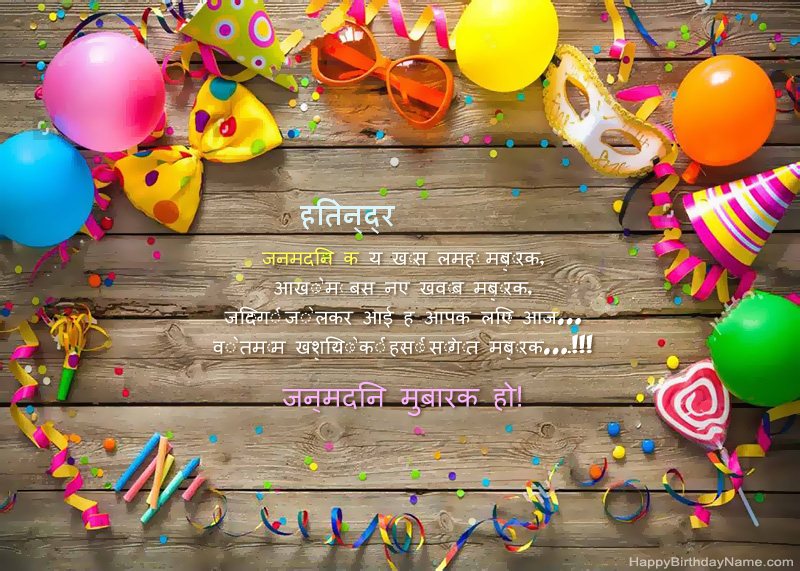 हतिन्द्र
जनमदनि क य खास लमह मबारक,
आखों म बस नए खवाब मबारक,
जदिगी जो लेकर आई ह आपक लएि आज...
वो तमाम खशयिों की हसीं सौगात मबारक...!!!
जन्मदनि मुबारक हो!
HappyBirthdayName.com